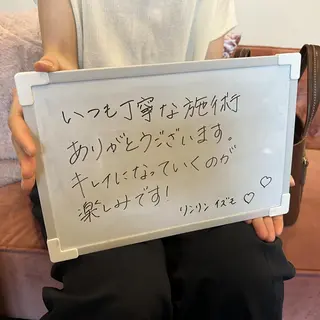 いつも丁寧な施術
ありがとうございます。
キレイになっていくのが
楽しみです!
リンリン イズモ ♡ ♡